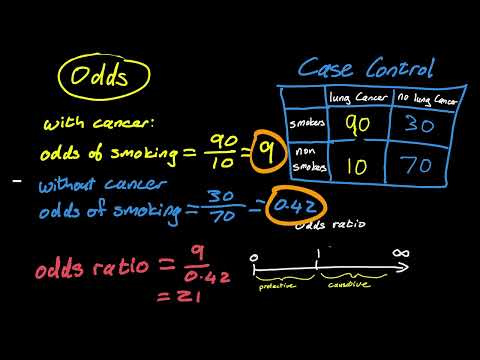 Odds
with cancer:
odds of smoking = 90/10 = 9
without cancer
odds of smoking = 30/70 = 0.42
odds ratio = 9/0.42
= 21
Case Control
lung Cancer no lung Cancer
smokers 90 30
non smokers 10 70
odds ratio
0 1 ∞
protective causative